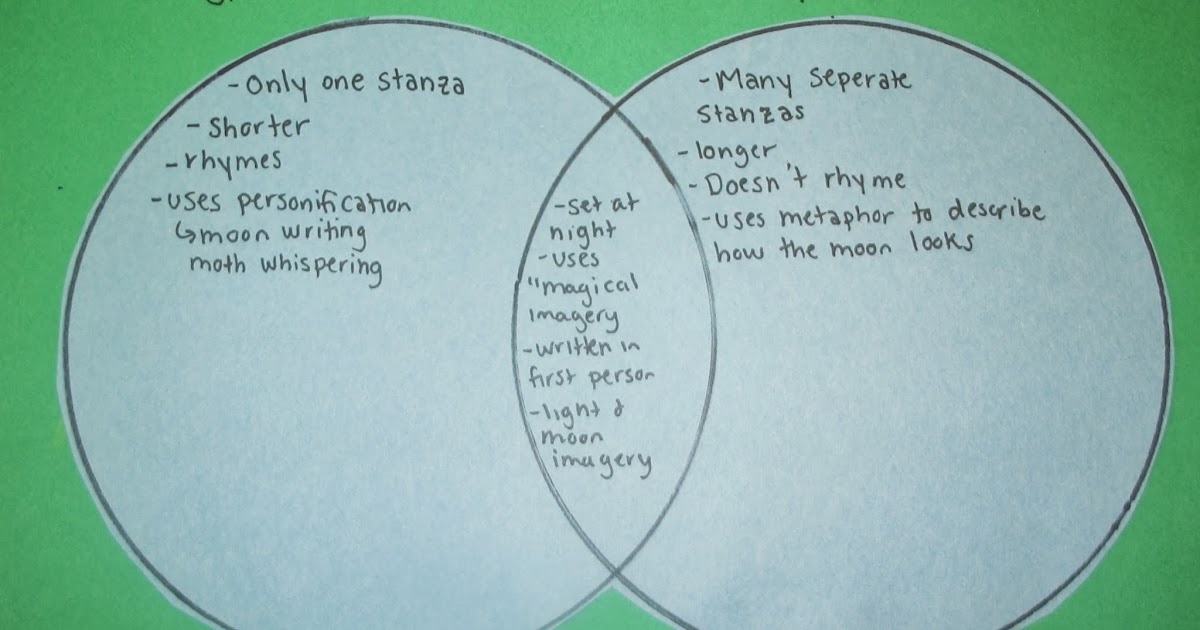 - Only one stanza
- Shorter
- rhymes
- uses personification
↳ moon writing
moth whispering
- set at
night
- uses
"magical
imagery
- written in
first person
- light &
moon
imagery
- Many seperate
stanzas
- longer
- Doesn't rhyme
- uses metaphor to describe
how the moon looks